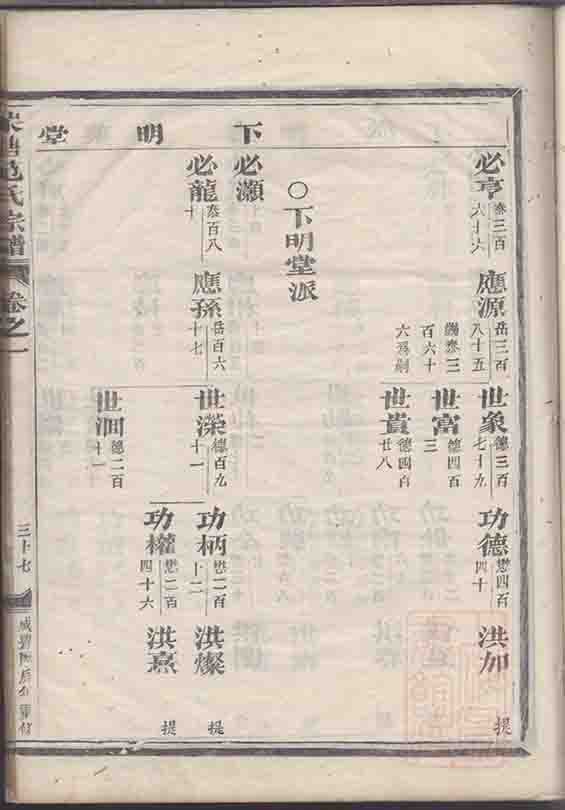 下明堂
必亨
泰三百
六十六
應源
岳三百
八十五
世象
德三百
七十九
功德
懋四百
四十
洪加
提
世富
德四百
三
世貴
德四百
廿八
百六十
六爲嗣
○下明堂派
必灝
必龍
泰百八
十
應孫
岳百六
十七
世濚
德百九
十一
功柄
懋二百
十二
洪燦
提
功權
懋二百
四十六
洪熹
提
世泂
德二百
十一
范氏宗譜
卷之一
三十七
咸豐